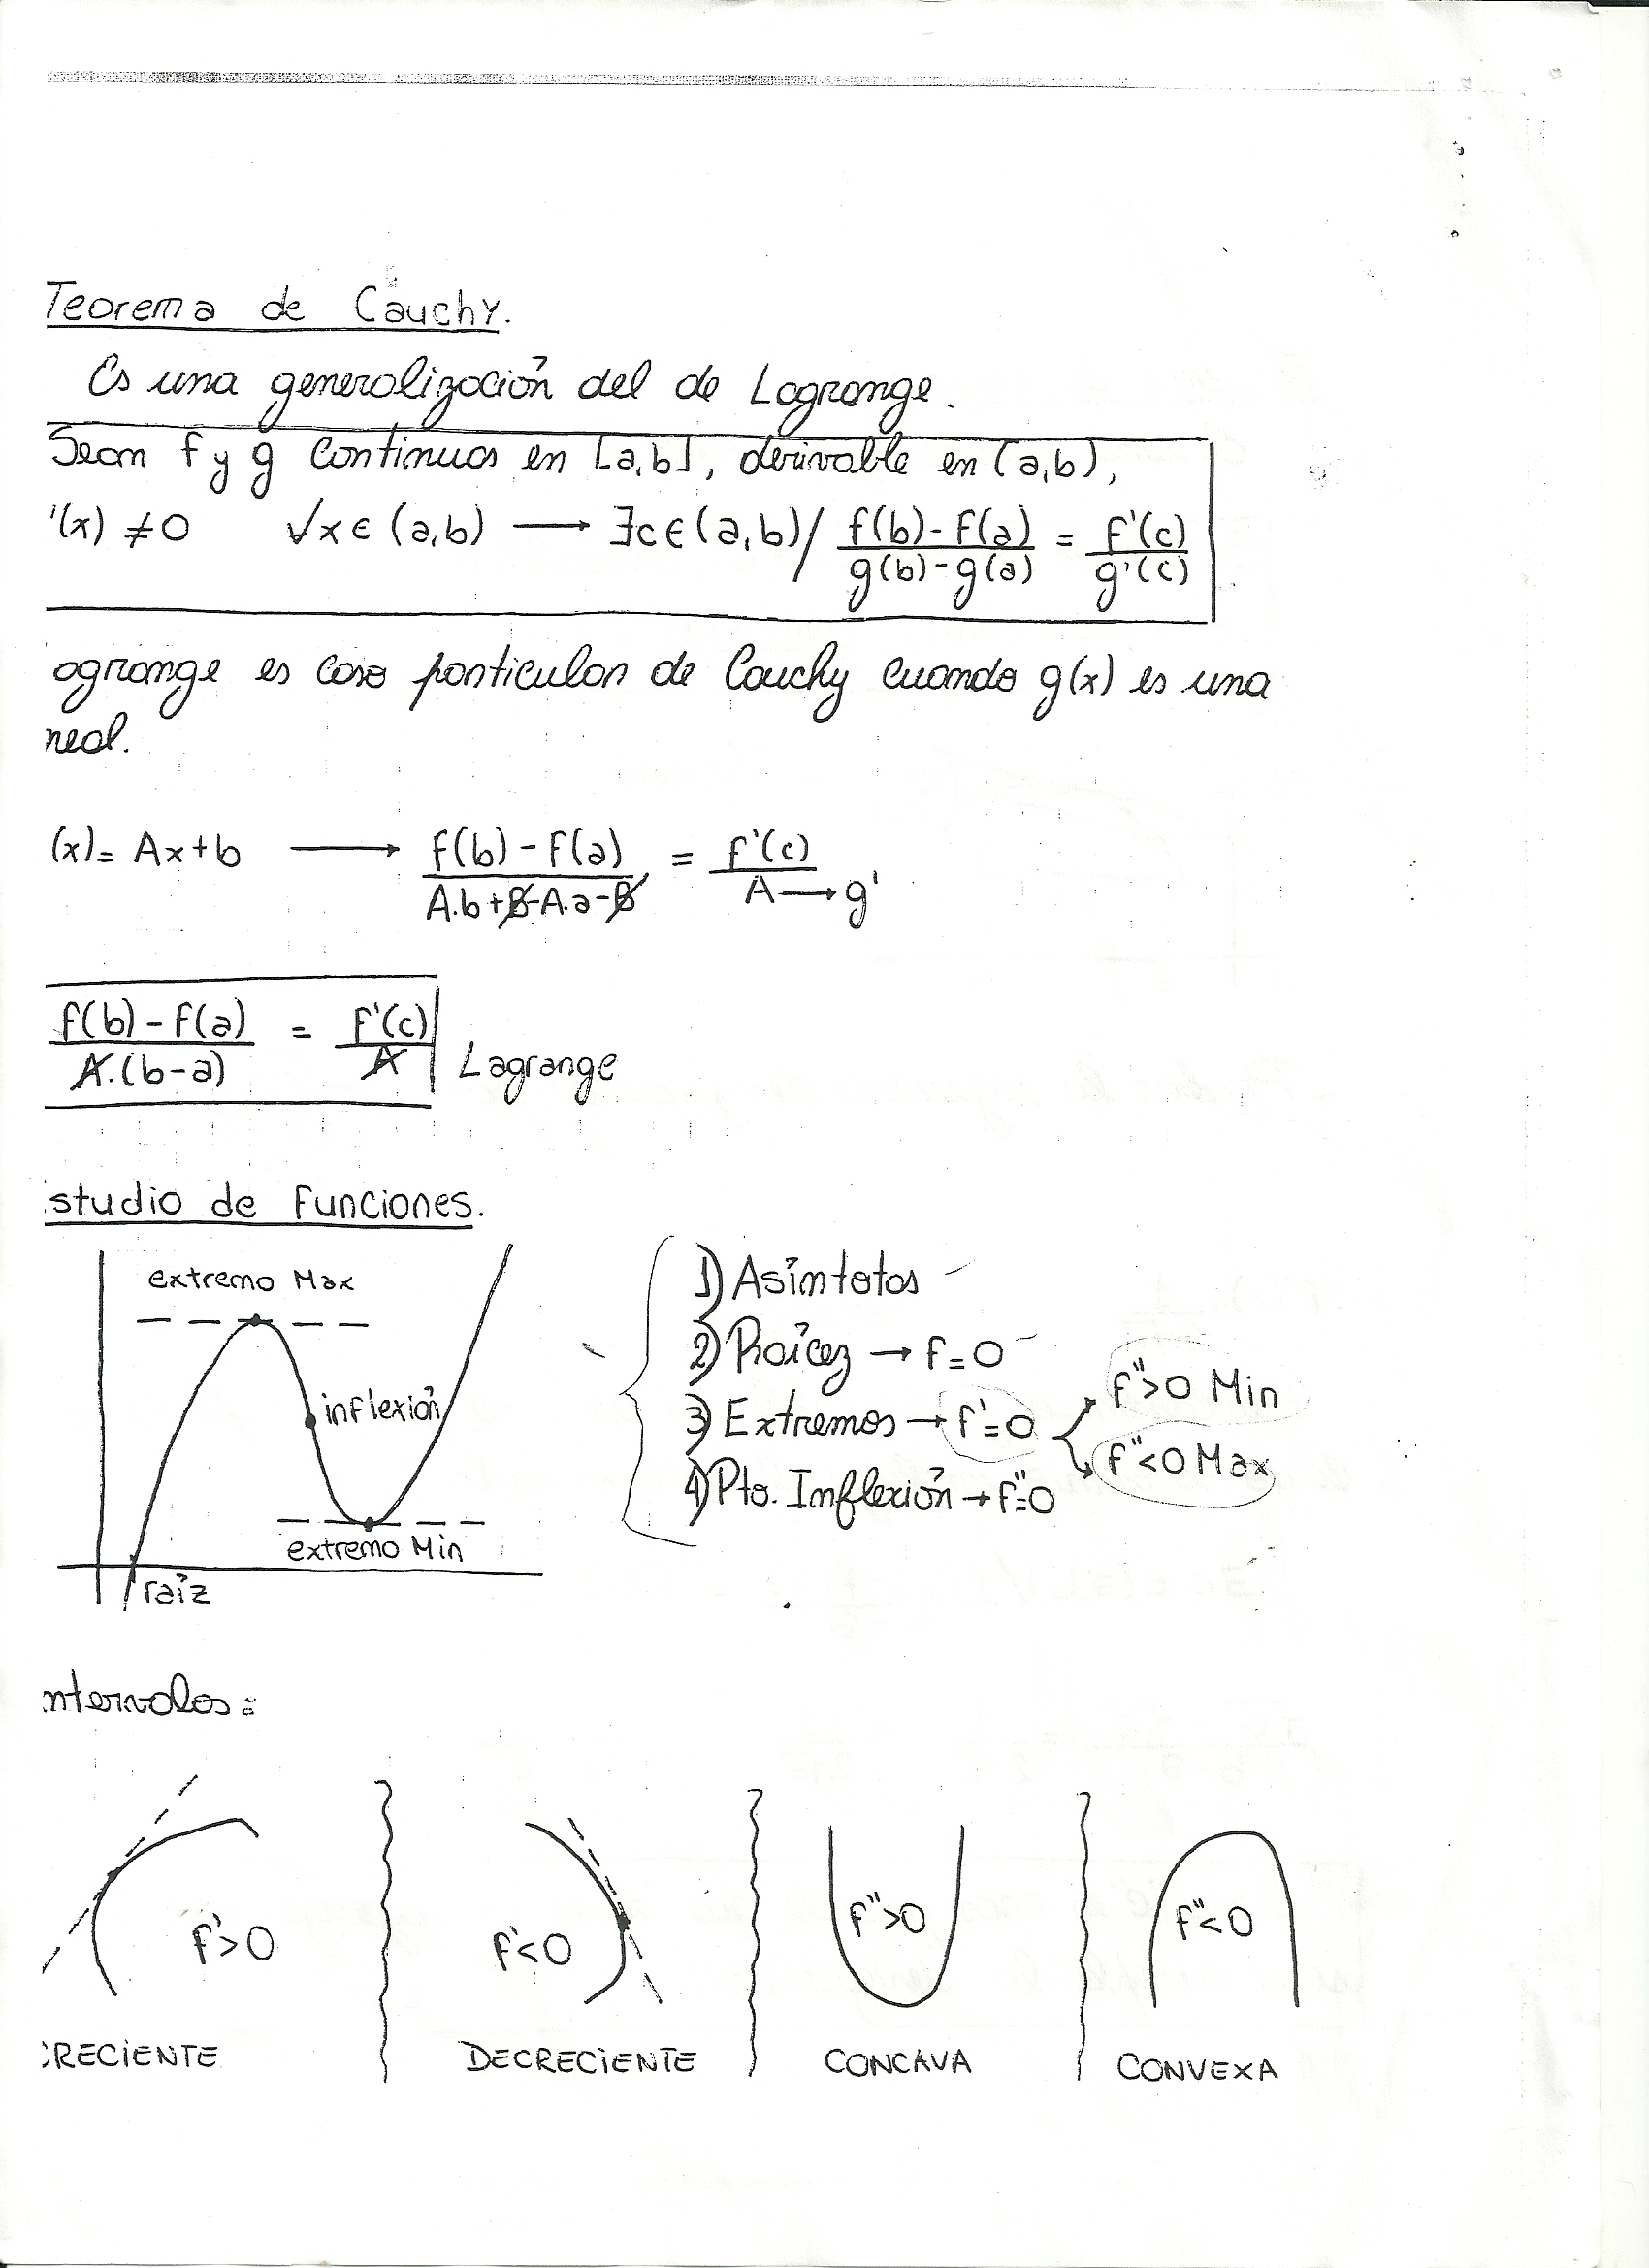 Teorema de Cauchy.
Es una generalización del de Lagrange.
Sean f y g continuas en [a,b], derivable en (a,b),
'(x) ≠ 0 ∀x ∈ (a,b) → ∃c ∈ (a,b) / f(b)-f(a) / g(b)-g(a) = f'(c) / g'(c)
agrange es caso particular de Cauchy cuando g(x) es una
neal.
(x) = Ax+b → f(b)-f(a) / A.b+B-A.a-B = f'(c) / A → g'
f(b)-f(a) / A.(b-a) = f'(c) / A Lagrange
studio de Funciones.
extremo Max
inflexión
extremo Min
raíz
1) Asíntotas
2) Raícez → f=0
3) Extremos → f'=0
f''>0 Min
f''<0 Max
4) Pto. Inflexión → f''=0
ntervalos:
f'>0
f'<0
f''>0
f''<0
RECIENTE
DECRECIENTE
CONCAVA
CONVEXA